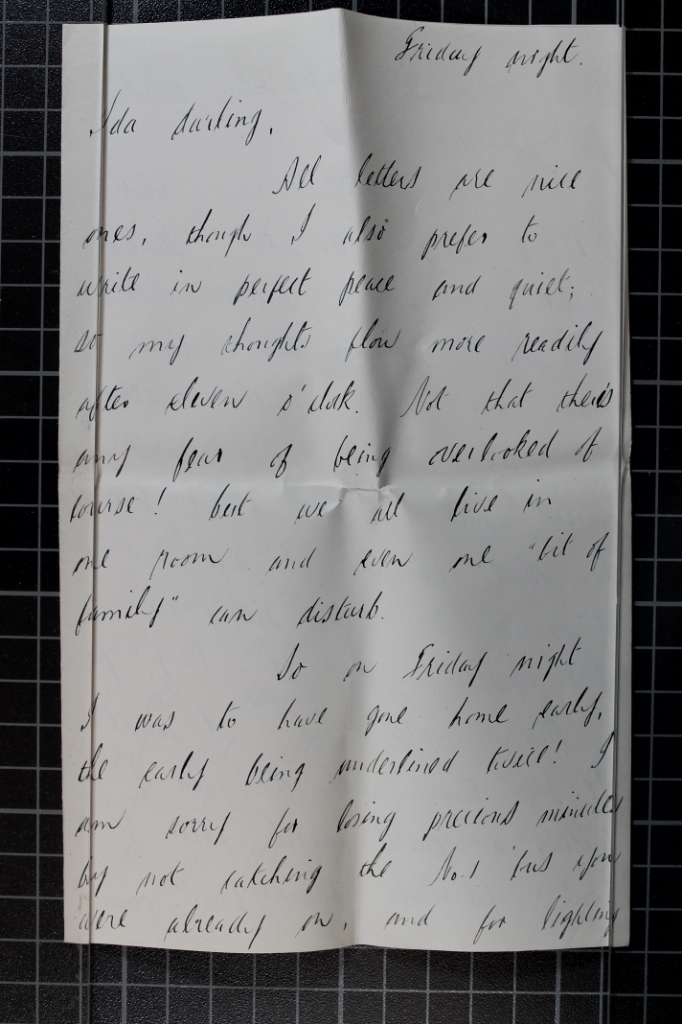 Friday night.
Ida darling,
All letters are nice
ones, though I also prefer to
write in perfect peace and quiet;
so my thoughts flow more readily
after eleven o'clock. Not that there's
any fear of being overlooked of
course! but we all live in
one room and even one "bit of
family" can disturb.
So on Friday night
I was to have gone home early,
the early being underlined twice! I
am sorry for losing precious minutes
by not catching the No. 1 'bus you
were already on, and for lighting